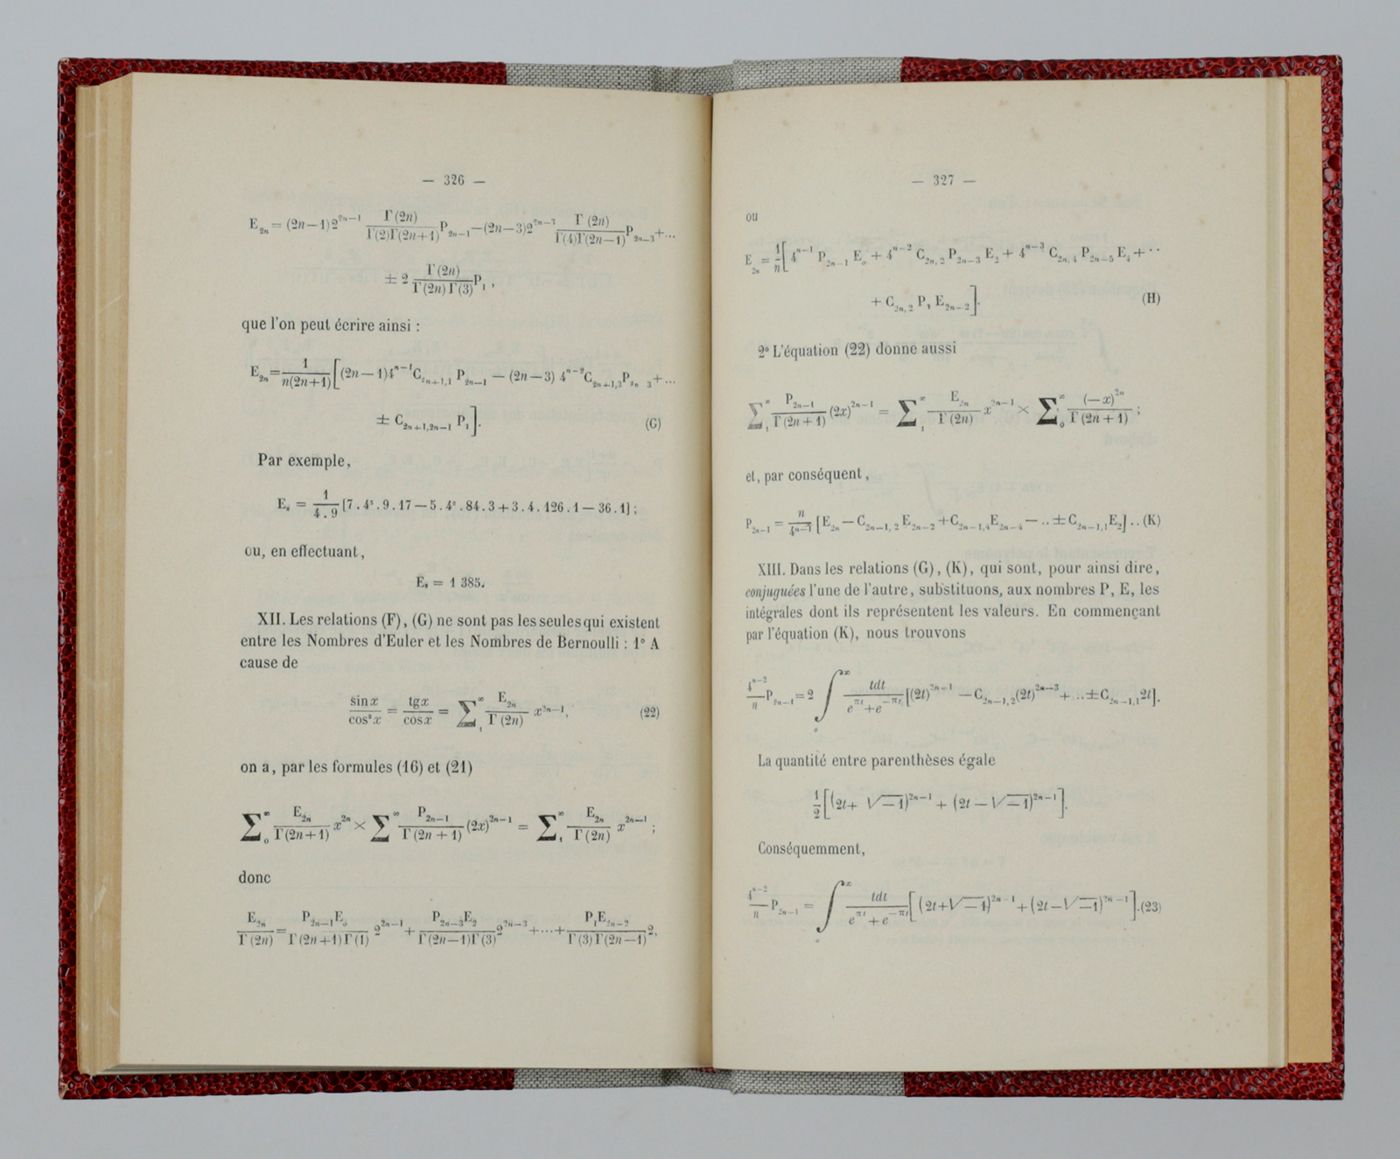 — 326 —
E_{2n} = (2n—1)2^{2n—1} Γ(2n)/Γ(2)Γ(2n+1) P_{2n—1} — (2n—3)2^{2n—3} Γ(2n)/Γ(4)Γ(2n—1) P_{2n—3} + ...
± 2 Γ(2n)/Γ(2n)Γ(3) P_1 ,
que l'on peut écrire ainsi :
E_{2n} = 1/n(2n+1) [(2n—1)4^{n—1} C_{2n+1,1} P_{2n—1} — (2n—3) 4^{n—2} C_{2n+1,3} P_{2n—3} + ...
± C_{2n+1,2n—1} P_1]. (G)
Par exemple,
E_8 = 1/4.9 [7.4³.9.17—5.4².84.3+3.4.126.1—36.1];
ou, en effectuant,
E_8 = 1 385.
XII. Les relations (F), (G) ne sont pas les seules qui existent
entre les Nombres d'Euler et les Nombres de Bernoulli : 1° A
cause de
sin x/cos²x = tg x/cos x = Σ_1^∞ E_{2n}/Γ(2n) x^{2n—1}, (22)
on a, par les formules (16) et (21)
Σ_0^∞ E_{2n}/Γ(2n+1) x^{2n} × Σ_1^∞ P_{2n—1}/Γ(2n+1) (2x)^{2n—1} = Σ_1^∞ E_{2n}/Γ(2n) x^{2n—1};
donc
E_{2n}/Γ(2n) = P_{2n—1}E_0/Γ(2n+1)Γ(1) 2^{2n—1} + P_{2n—3}E_2/Γ(2n—1)Γ(3) 2^{2n—3} + ... + P_1E_{2n—2}/Γ(3)Γ(2n—1) 2,
— 327 —
ou
E_{2n} = 1/n [4^{n—1} P_{2n—1} E_0 + 4^{n—2} C_{2n,2} P_{2n—3} E_2 + 4^{n—3} C_{2n,4} P_{2n—5} E_4 + ..
+ C_{2n,2} P_1 E_{2n—2}]. (H)
2° L'équation (22) donne aussi
Σ_1^∞ P_{2n—1}/Γ(2n+1) (2x)^{2n—1} = Σ_1^∞ E_{2n}/Γ(2n) x^{2n—1} × Σ_0^∞ (—x)^{2n}/Γ(2n+1);
et, par conséquent,
P_{2n—1} = n/4^{n—1} [E_{2n} — C_{2n—1,2} E_{2n—2} + C_{2n—1,4} E_{2n—4} — .. ± C_{2n—1,1} E_2] .. (K)
XIII. Dans les relations (G), (K), qui sont, pour ainsi dire,
conjuguées l'une de l'autre, substituons, aux nombres P, E, les
intégrales dont ils représentent les valeurs. En commençant
par l'équation (K), nous trouvons
4^{n—2}/n P_{2n—1} = 2 ∫_0^∞ tdt/e^{πt}+e^{—πt} [(2t)^{2n—1} — C_{2n—1,2}(2t)^{2n—3} + ... ± C_{2n—1,1} 2t].
La quantité entre parenthèses égale
1/2 [(2t + √—1)^{2n—1} + (2t — √—1)^{2n—1}].
Conséquemment,
4^{n—2}/n P_{2n—1} = ∫_0^∞ tdt/e^{πt}+e^{—πt} [(2t+√—1)^{2n—1} + (2t—√—1)^{2n—1}].(23)